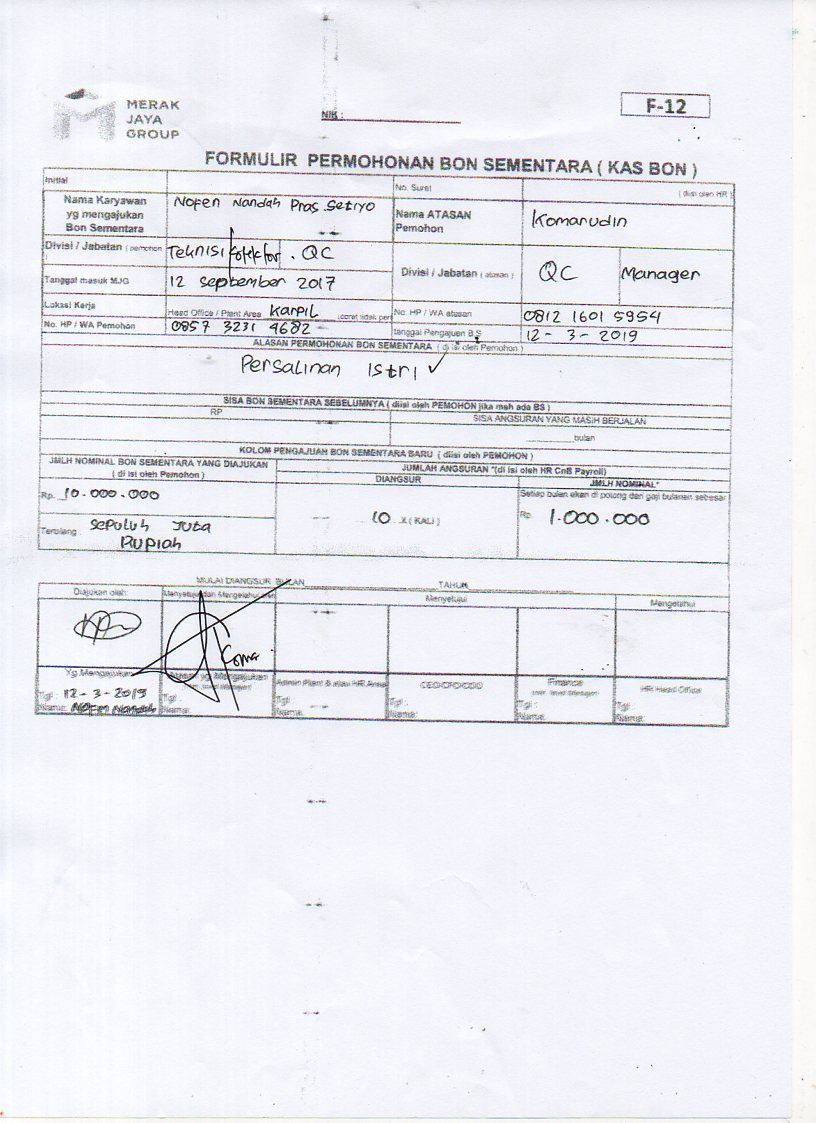 MERAK
JAYA
GROUP
NIK :
F-12
FORMULIR PERMOHONAN BON SEMENTARA ( KAS BON )
Initial
No. Surat
( diisi oleh HR )
Nama Karyawan
yg mengajukan
Bon Sementara
Nofen Nandah Pras Setiyo
Nama ATASAN
Pemohon
Komarudin
Divisi / Jabatan ( pemohon )
Teknisi . QC
Divisi / Jabatan ( atasan )
QC
Manager
Tanggal masuk MJG
12 September 2017
Lokasi Kerja
Head Office / Plant Area Karpil
No. HP / WA atasan
0812 1601 5954
No. HP / WA Pemohon
0857 3231 4682
tanggal Pengajuan B.S
12 - 3 - 2019
ALASAN PERMOHONAN BON SEMENTARA ( di isi oleh Pemohon )
Persalinan Istri ✓
SISA BON SEMENTARA SEBELUMNYA ( diisi oleh PEMOHON jika msh ada BS )
RP
SISA ANGSURAN YANG MASIH BERJALAN
bulan
KOLOM PENGAJUAN BON SEMENTARA BARU ( diisi oleh PEMOHON )
JMLH NOMINAL BON SEMENTARA YANG DIAJUKAN
( di isi oleh Pemohon )
JUMLAH ANGSURAN *(di isi oleh HR CnB Payroll)
DIANGSUR
JMLH NOMINAL*
Setiap bulan akan di potong dari gaji bulanan sebesar
Rp. 10.000.000
10 X ( KALI )
Rp. 1.000.000
Terbilang : Sepuluh Juta
Rupiah
MULAI DIANGSUR BULAN
TAHUN
Diajukan oleh:
Menyetujui dan Mengetahui
Menyetujui
Mengetahui
Koma
Yg Mengajukan
Atasan yg Mengajukan
Admin Plant & atau HR Area
CEO/CFO/COO
Finance
HR Head Office
Tgl : 12 - 3 - 2019
Tgl :
Tgl :
Tgl :
Tgl :
Tgl :
Nama: Nofen Nandah
Nama:
Nama:
Nama:
Nama:
Nama: